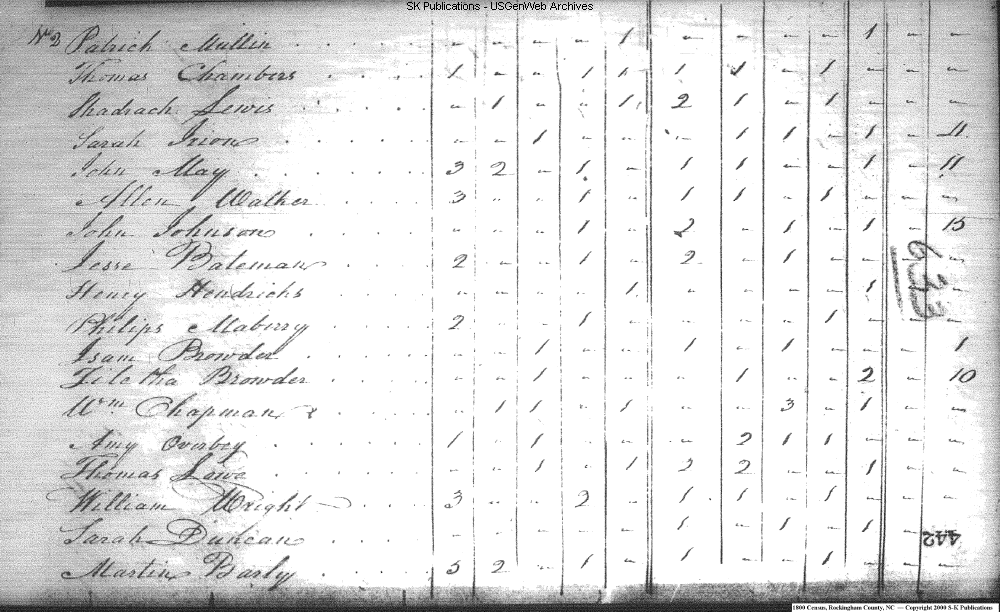 SK Publications - USGenWeb Archives
No. 2 Patrick Mullin - - - - 1 - - - - 1 - -
Thomas Chambers 1 - - 1 1 1 1 - 1 - - -
Shadrach Lewis - 1 - - 1 2 1 - 1 - - -
Sarah Irion - - 1 - - - 1 1 - 1 - 11
John May 3 2 - 1 - 1 1 - - 1 - 11
Allen Walker 3 - - 1 - 1 1 - 1 - - -
John Johnson - - - 1 - 2 - 1 - 1 - 15
Jesse Bateman 2 - - 1 - 2 - 1 - - - -
Henry Hendricks - - - - 1 - - - - 1 - -
Philips Maberry 2 - - 1 - - - - 1 - - -
Isam Browder - - 1 - - 1 - 1 - - - 1
Browder - - 1 - - - 1 - - 2 - 10
Wm Chapman - 1 1 - 1 - - 3 - 1 - -
Amy Overbey 1 - 1 - - - 2 1 1 - - -
Thomas Lowe - - 1 - 1 3 2 - - 1 - -
William Wright 3 - - 2 - 1 1 - 1 - - -
Sarah Duncan - - - - - 1 - 1 - 1 - -
Martin Barly 3 2 - 1 - 1 - - 1 - - -
633
442
1800 Census, Rockingham County, NC — Copyright 2000 S-K Publications